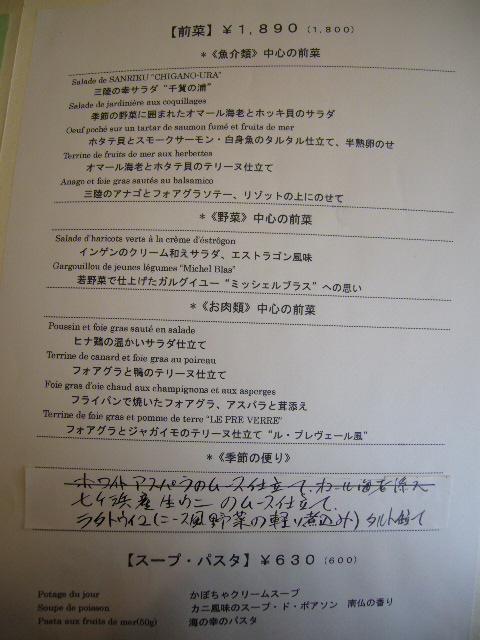 【前菜】¥１,８９０ (１,８００)
＊《魚介類》中心の前菜
Salade de SANRIKU "CHIGANO-URA"
三陸の幸サラダ "千賀の浦"
Salade de jardinière aux coquillages
季節の野菜に囲まれたオマール海老とホッキ貝のサラダ
Oeuf poché sur un tartar de saumon fumé et fruits de mer
ホタテ貝とスモークサーモン・白身魚のタルタル仕立て、半熟卵のせ
Terrine de fruits de mer aux herbettes
オマール海老とホタテ貝のテリーヌ仕立て
Anago et foie gras sautés au balsamico
三陸のアナゴとフォアグラソテー、リゾットの上にのせて
＊《野菜》中心の前菜
Salade d'haricots verts à la crème d'éstrôgon
インゲンのクリーム和えサラダ、エストラゴン風味
Gargouillou de jeunes légumes "Michel Blas"
若野菜で仕上げたガルグイユー "ミッシェルブラス" への思い
＊《お肉類》中心の前菜
Poussin et foie gras sauté en salade
ヒナ鶏の温かいサラダ仕立て
Terrine de canard et foie gras au poireau
フォアグラと鴨のテリーヌ仕立て
Foie gras d'oie chaud aux champignons et aux asperges
フライパンで焼いたフォアグラ、アスパラと茸添え
Terrine de foie gras et pomme de terre "LE PRE VERRE"
フォアグラとジャガイモのテリーヌ仕立て "ル・プレヴェール風"
＊《季節の便り》
ホワイトアスパラのムース仕立て、オマール海老添え
七ヶ浜産生ウニのムース仕立て、
ラタトゥイユ(ニース風野菜の軽い煮込み) タルト仕立て
【スープ・パスタ】¥６３０ (600)
Potage du jour かぼちゃクリームスープ
Soupe de poisson カニ風味のスープ・ド・ポアソン 南仏の香り
Pasta aux fruits de mer(50g) 海の幸のパスタ